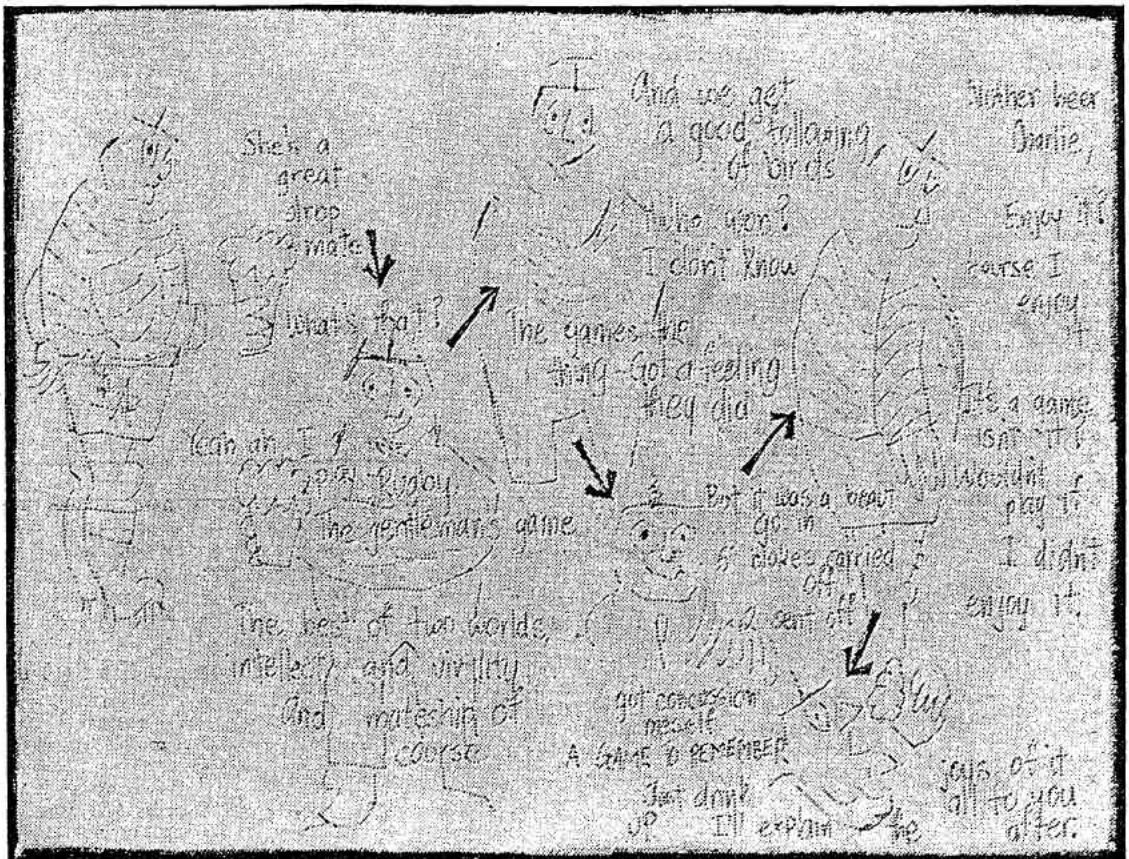 She's a
great
drop
mate
What's that?
Yeah ah I
play Rugby
The gentleman's game
The best of two worlds,
intellect and virility,
And mateship of
course
And we get
a good following
of birds
Who won?
I don't know
The games the
thing - Got a feeling
they did
But it was a beaut
go in
5 blokes carried
off
2 sent off
got concussion
meself
A GAME TO REMEMBER
Just drink
up I'll explain the
joys of it
all to you
after.
'Nother beer
Charlie,
Enjoy it?
'course I
enjoy
it
It's a game
isn't it?
Wouldn't
play if
I didn't
enjoy it.